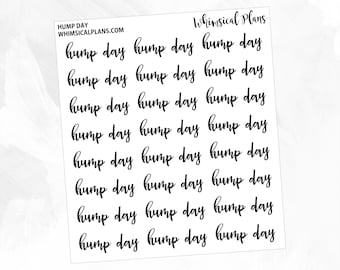 HUMP DAY
WHIMSICALPLANS.COM
Whimsical Plans
hump day hump day hump day
hump day hump day hump day
hump day hump day hump day
hump day hump day hump day
hump day hump day hump day
hump day hump day hump day
hump day hump day hump day
hump day hump day hump day